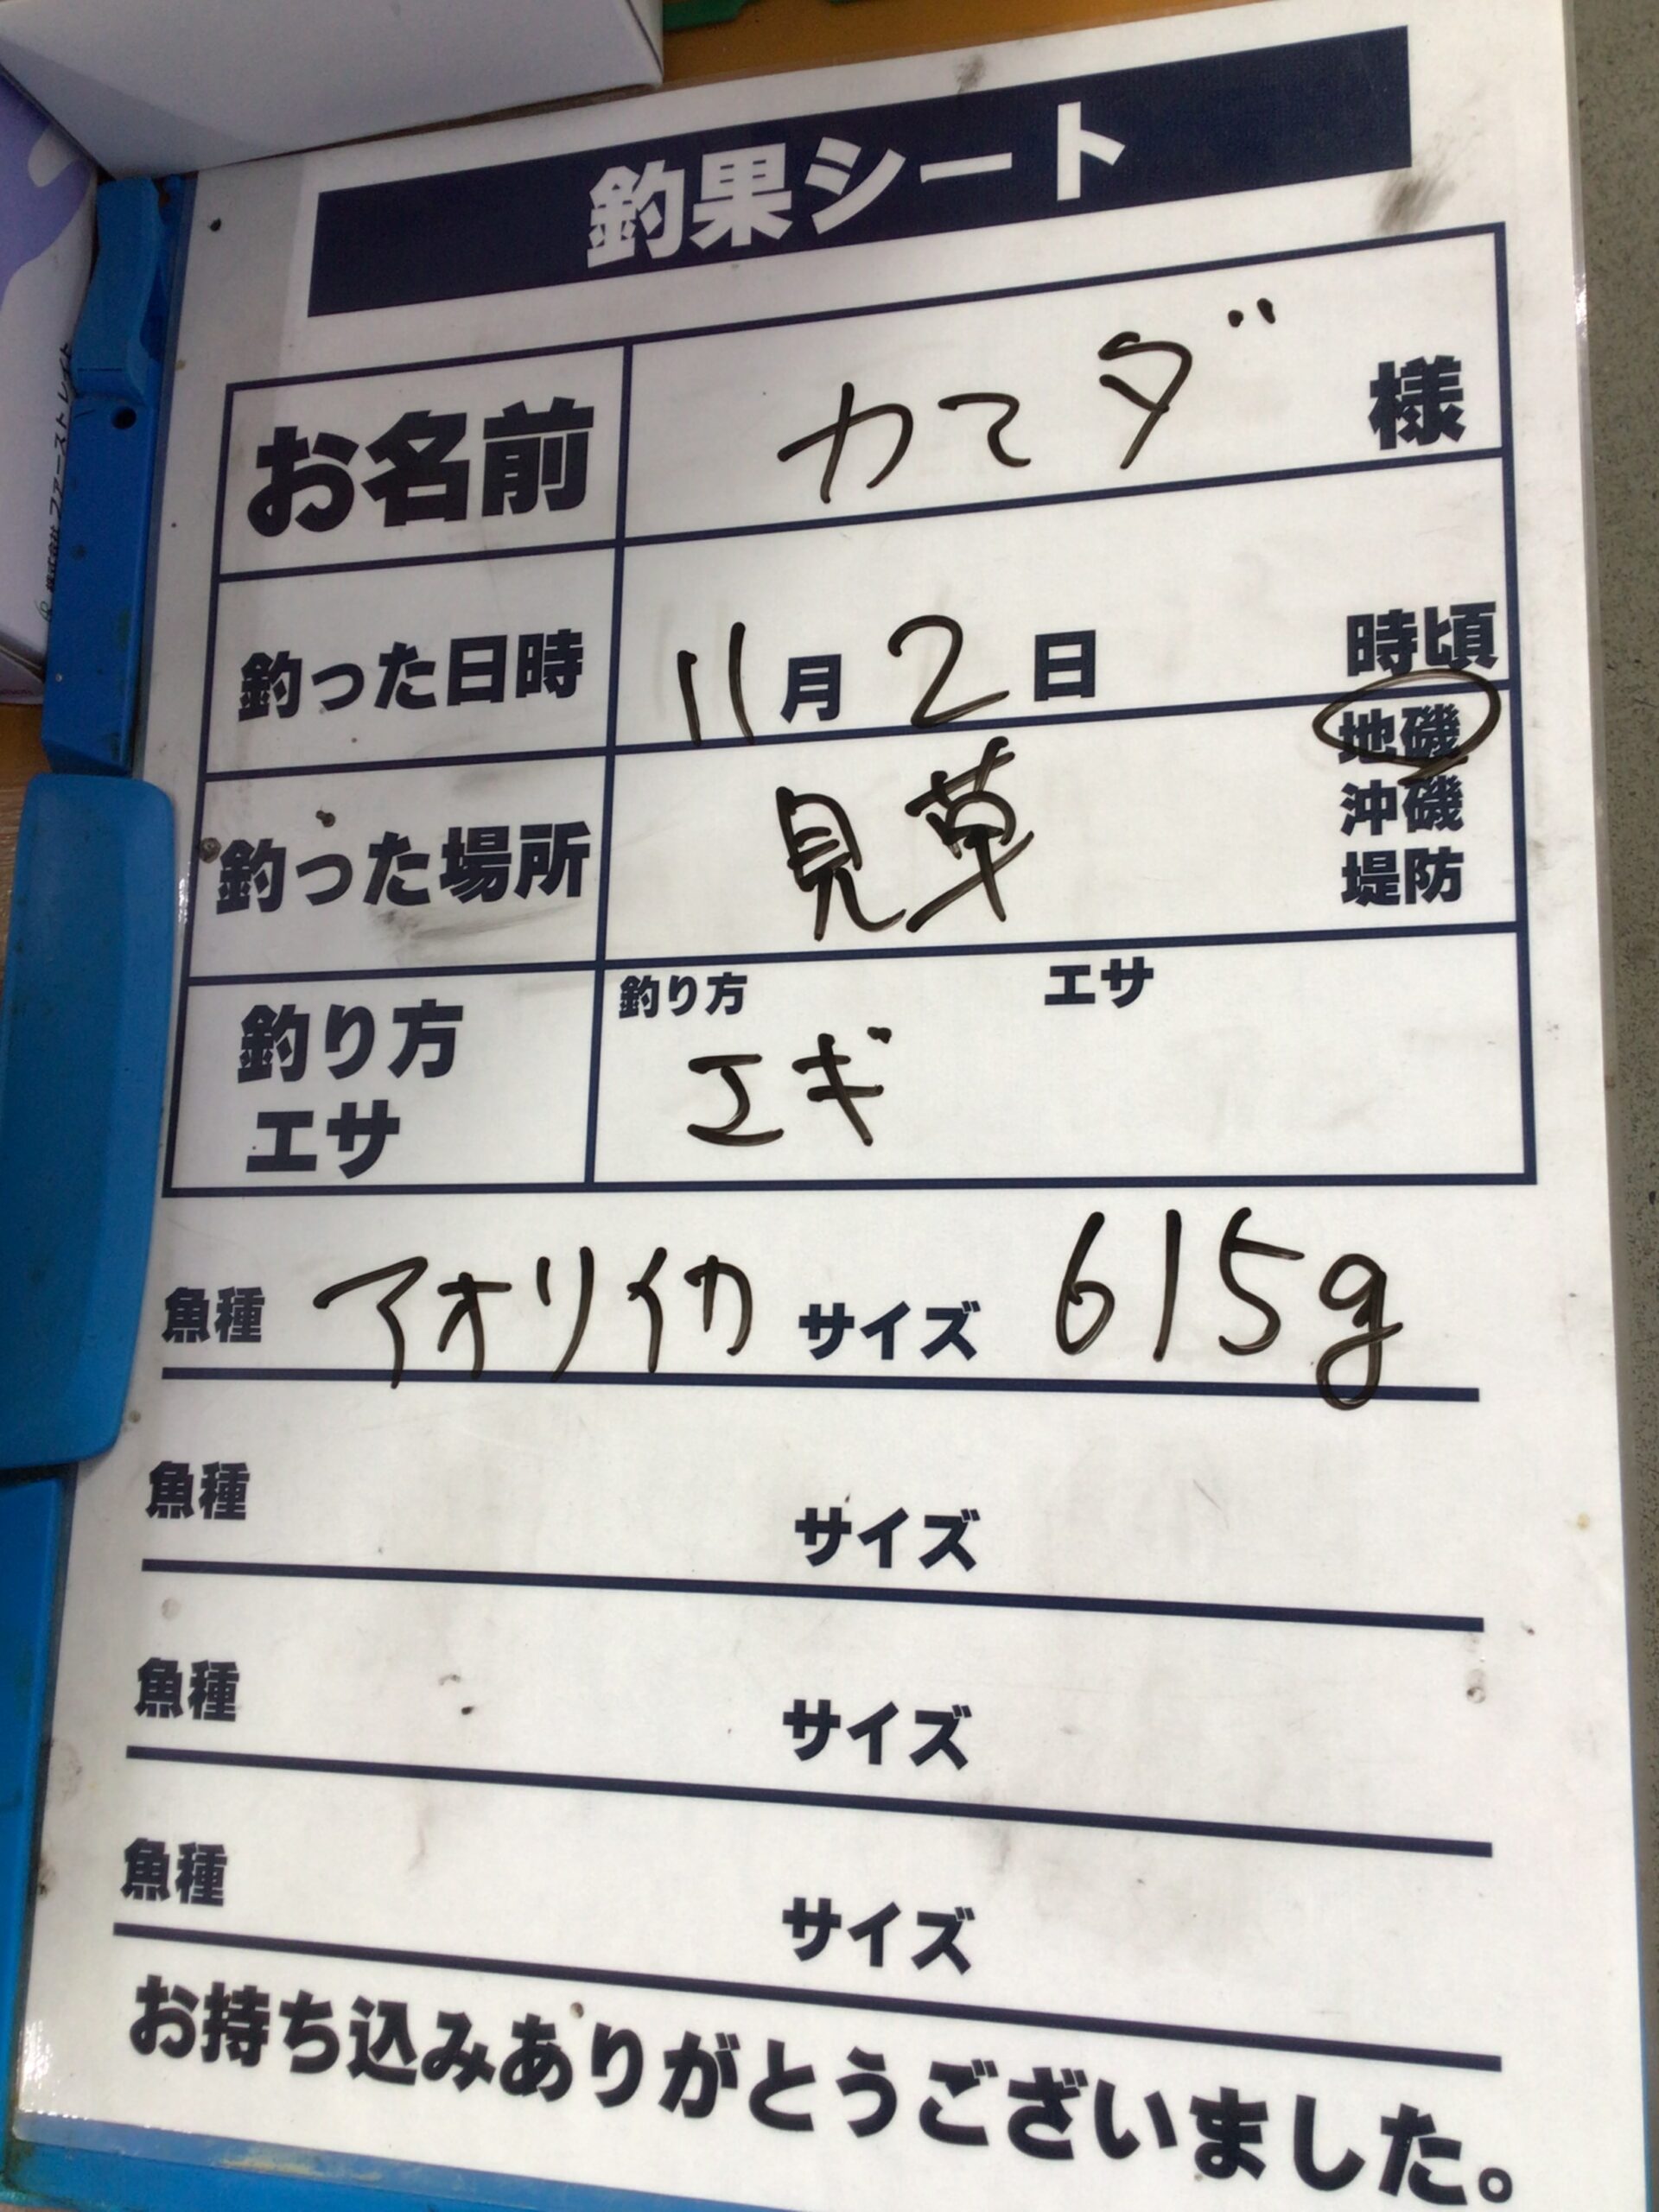 釣果シート
お名前 カマダ 様
釣った日時 11月2日 時頃
釣った場所 見草 地磯
沖磯
堤防
釣り方 エサ
釣り方
エサ
エギ
魚種 アオリイカ サイズ 615g
魚種 サイズ
魚種 サイズ
魚種 サイズ
お持ち込みありがとうございました。
株式会社ファーストレイト